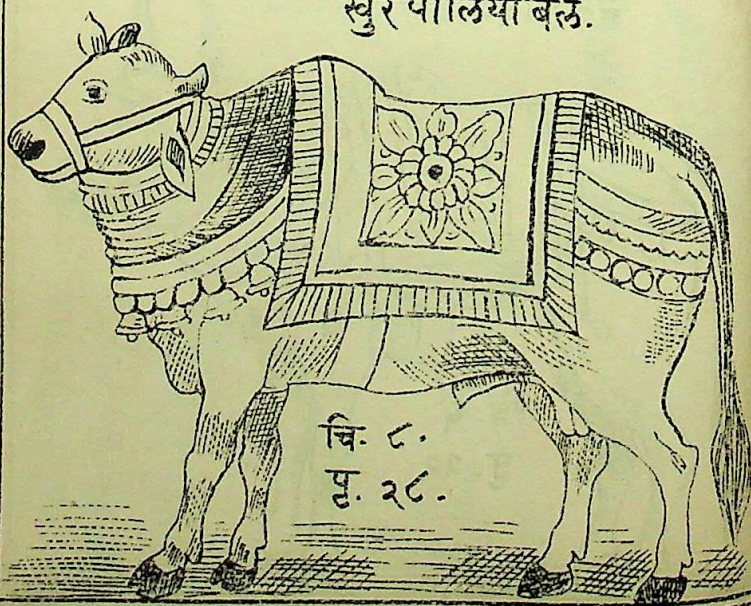 खुर पालिया बैल.
चि. ८.
पृ. २८.